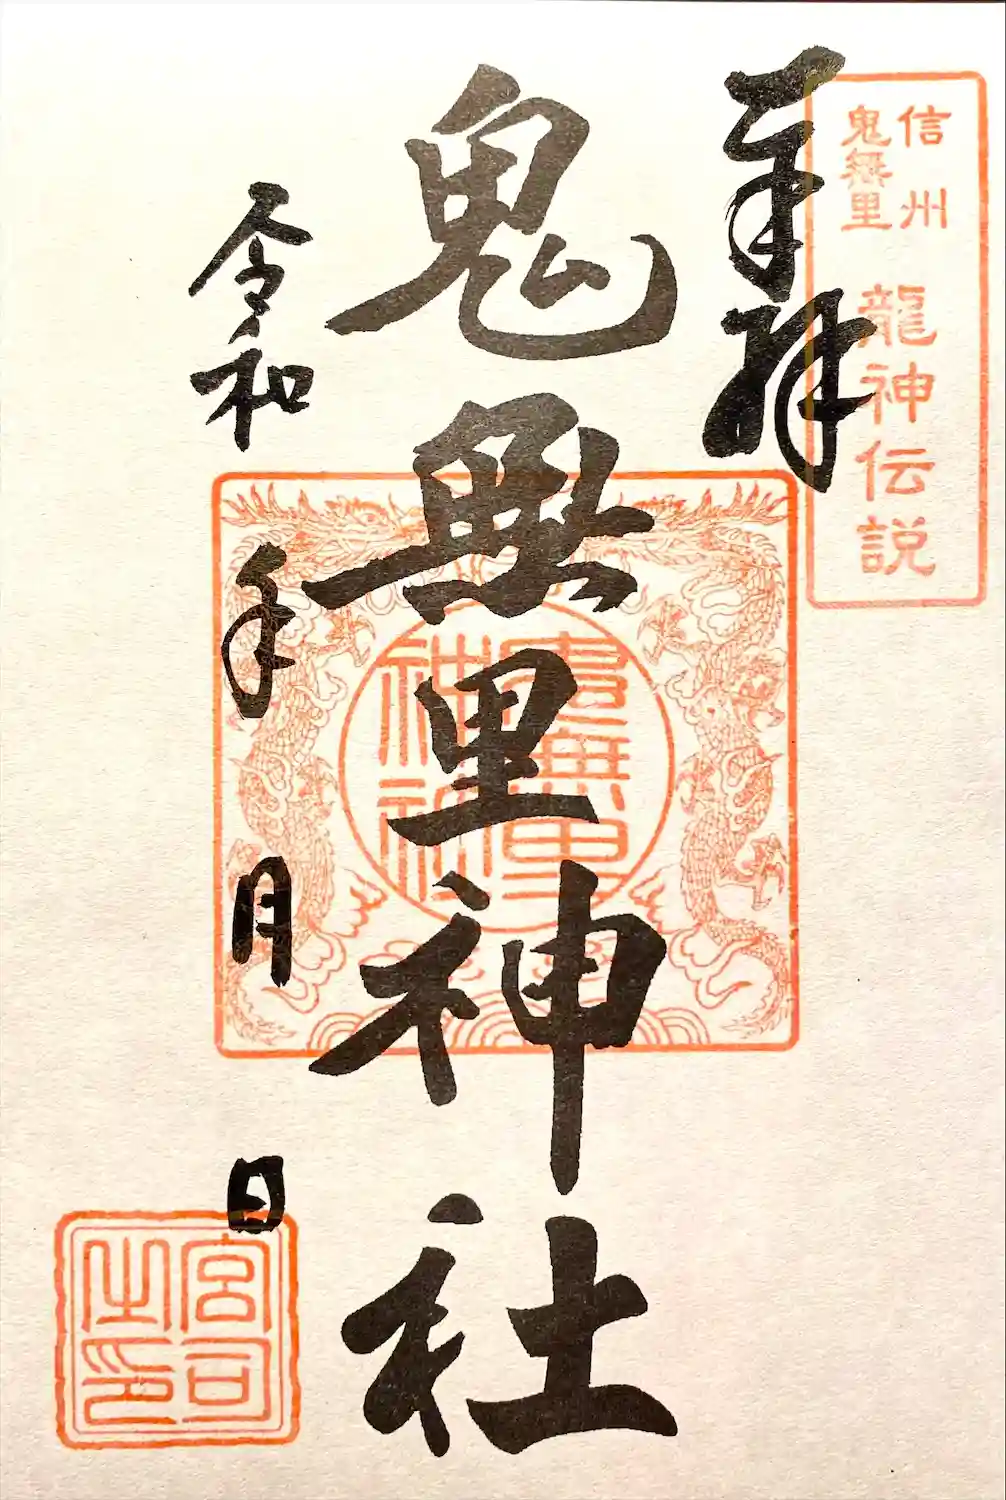 奉拝
信州
鬼無里
龍神伝説
鬼無里神社
令和 年 月 日
鬼無里
神社
宮司
之印